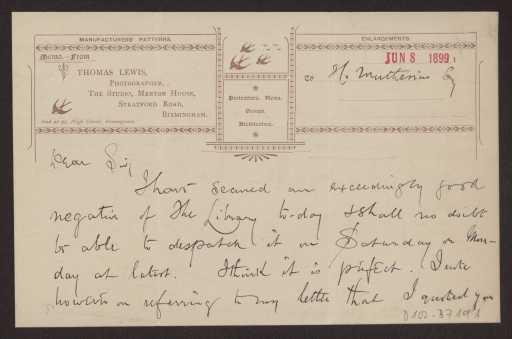 MANUFACTURERS' PATTERNS.
ENLARGEMENTS
Memo. From
JUN 8 1899
THOMAS LEWIS,
PHOTOGRAPHER,
THE STUDIO, MERTON HOUSE,
STRATFORD ROAD,
BIRMINGHAM.
And at 42, High Street,
TO H. Muthesius Esq
Portraiture, Views,
Groups,
Dear Sir,
I have secured an exceedingly good
negative of The Library to-day & shall no doubt
be able to despatch it on Saturday or Mon-
day at latest. I think it is perfect. I note
however on referring to my letter that I quoted you